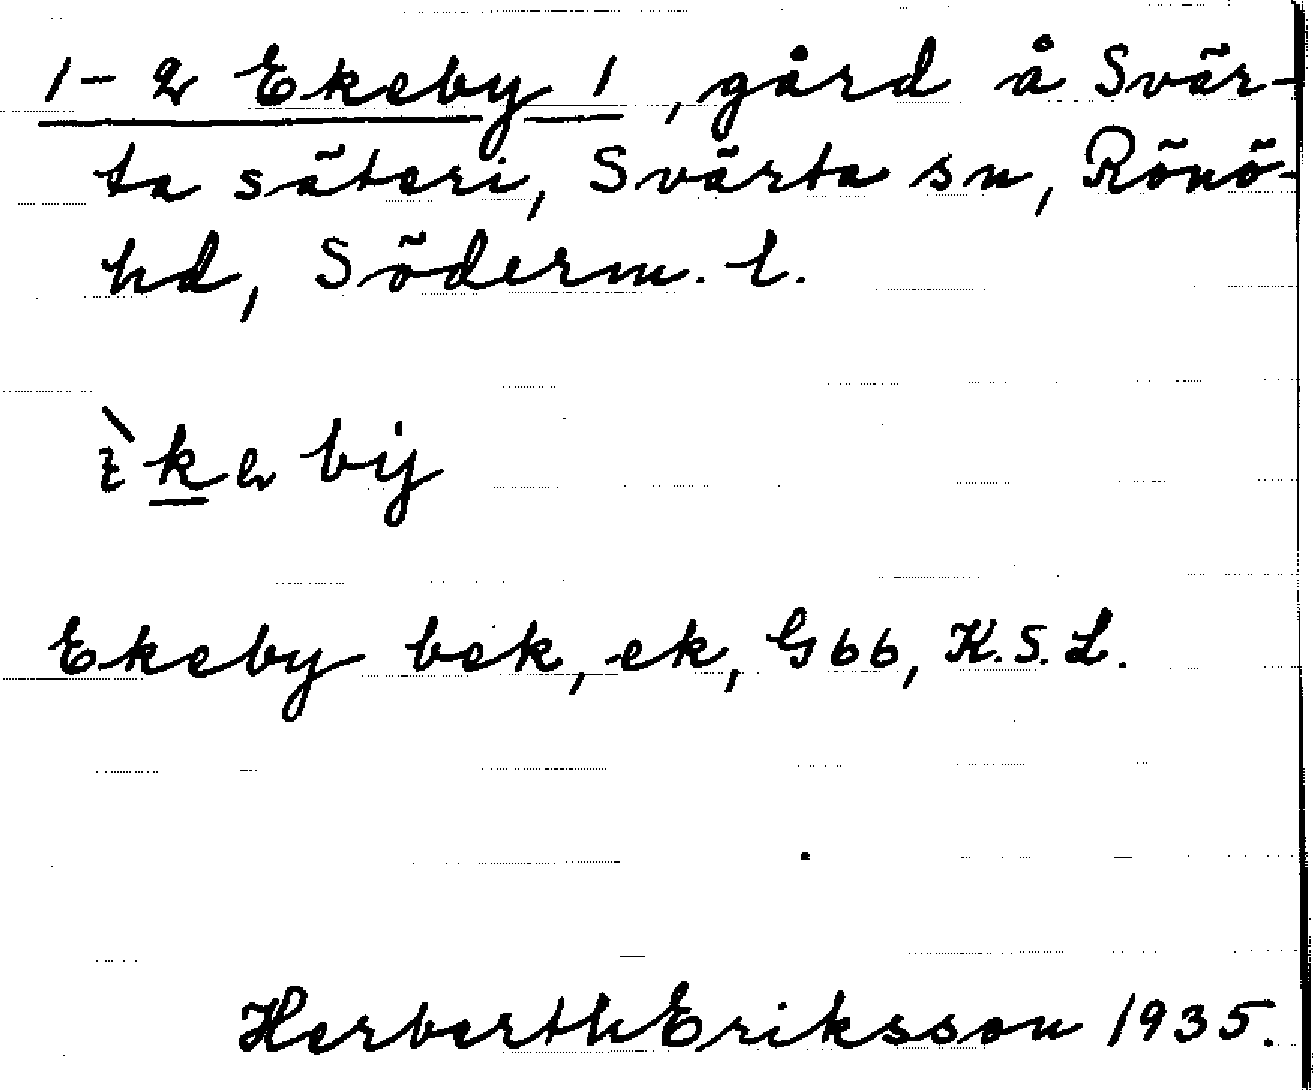 1-2 Ekeby 1, gård å Svär-
ta säteri, Svärta sn, Rönö-
hd, Söderm. l.
Ekeby bek, ek, G66, K.S.L.
Herberth Eriksson 1935.